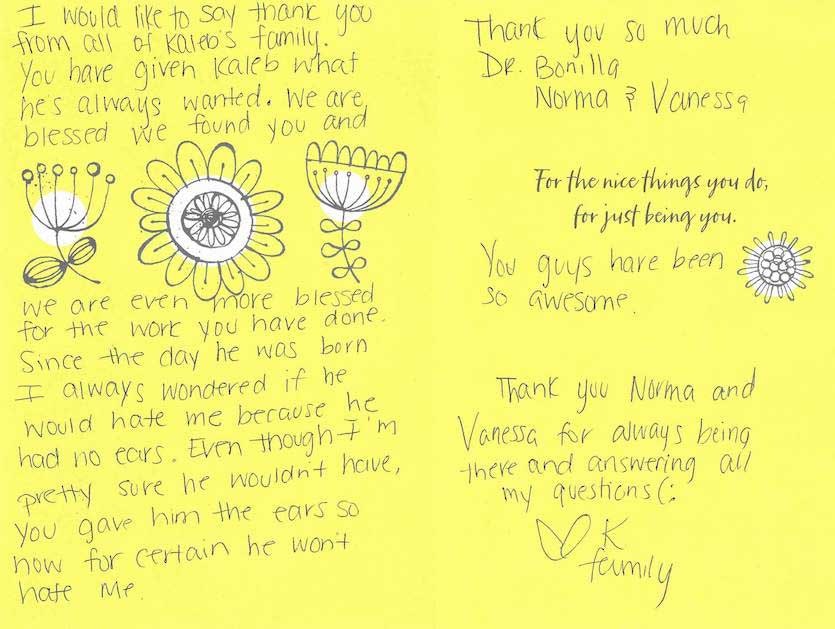 I would like to say thank you
from all of Kaleb's family.
You have given Kaleb what
he's always wanted. We are
blessed we found you and
we are even more blessed
for the work you have done.
Since the day he was born
I always wondered if he
would hate me because he
had no ears. Even though I'm
pretty sure he wouldn't have,
you gave him the ears so
now for certain he won't
hate me.
Thank you so much
DR. Bonilla
Norma & Vanessa
For the nice things you do,
for just being you.
You guys have been
so awesome.
Thank you Norma and
Vanessa for always being
there and answering all
my questions (:
K
family